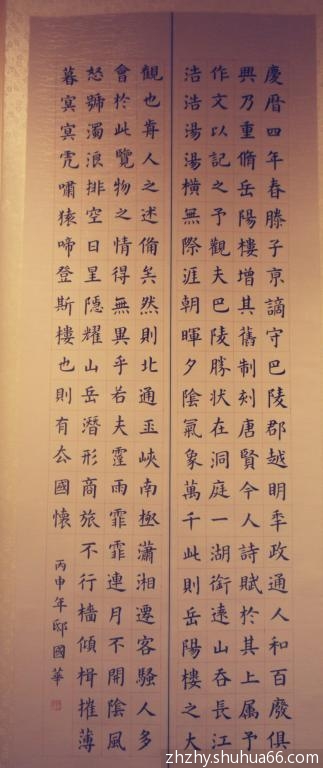 慶曆四年春滕子京謫守巴陵郡越明秊政通人和百廢俱
興乃重脩岳陽樓增其舊制刻唐賢今人詩賦於其上属予
作文以記之予觀夫巴陵勝状在洞庭一湖銜遠山吞長江
浩浩湯湯橫無際涯朝暉夕陰氣象萬千此則岳陽樓之大
觀也歬人之述備矣然則北通巫峽南極瀟湘遷客騷人多
會於此覽物之情得無異乎若夫霪雨霏霏連月不開陰風
怒號濁浪排空日星隱耀山岳潛形商旅不行檣傾楫摧薄
暮冥冥虎嘯猿啼登斯樓也則有去國懷
丙申年邸國華
zhzhy.shuhua66.com